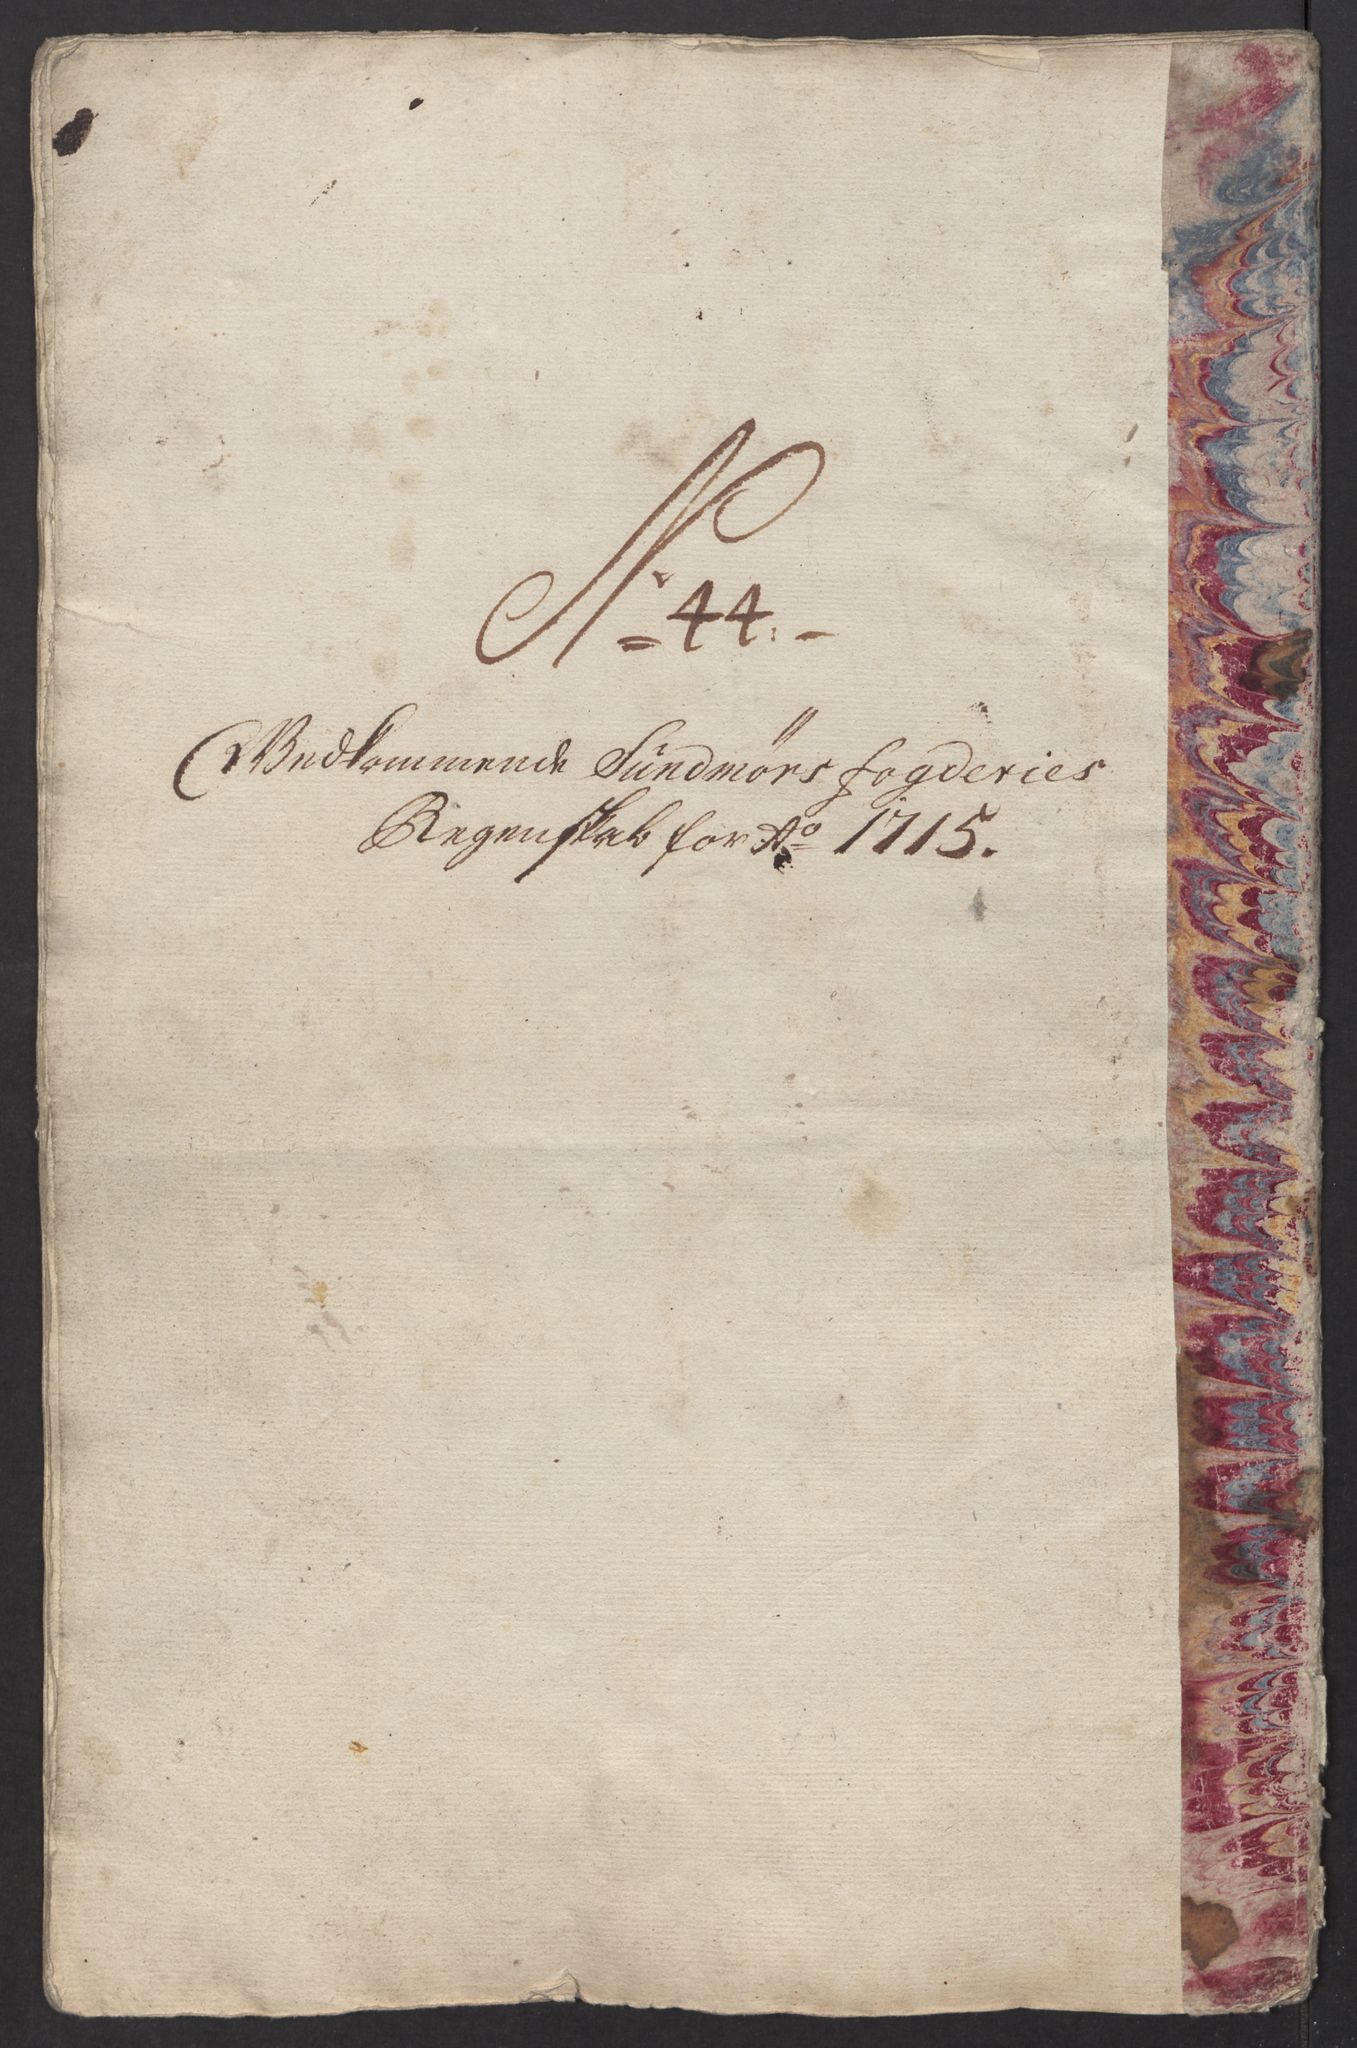 N: 44. -
Vedkommende Sundmørs fogderies
Regenskab for Ao 1715.